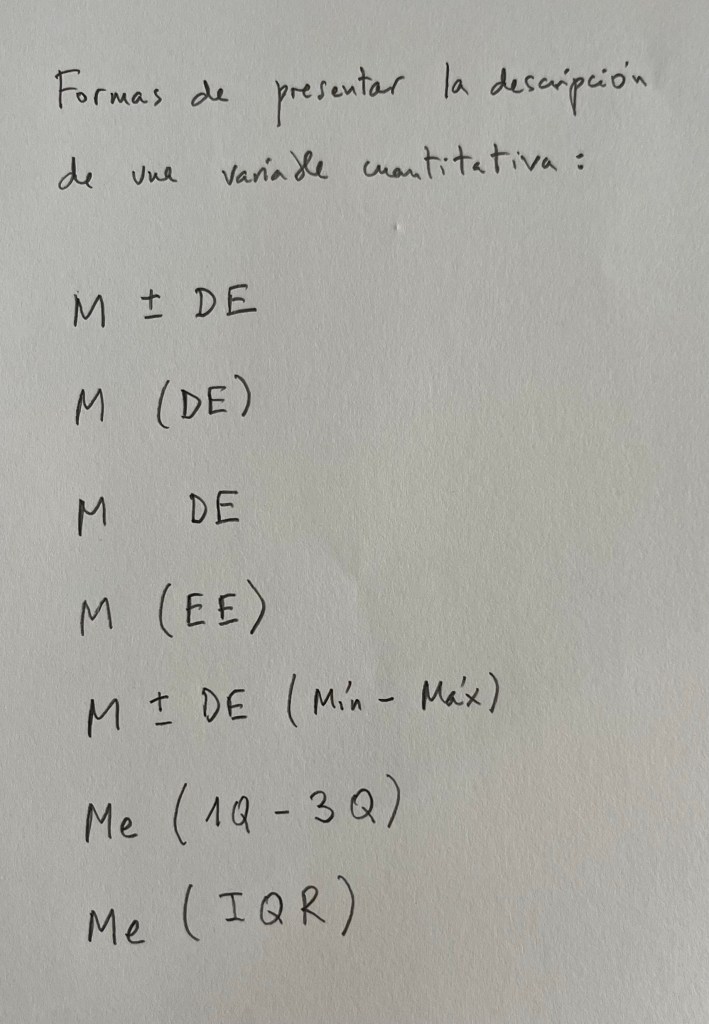 Formas de presentar la descripción
de una variable cuantitativa :
M ± DE
M (DE)
M DE
M (EE)
M ± DE (Mín - Máx)
Me (1Q - 3Q)
Me (IQR)